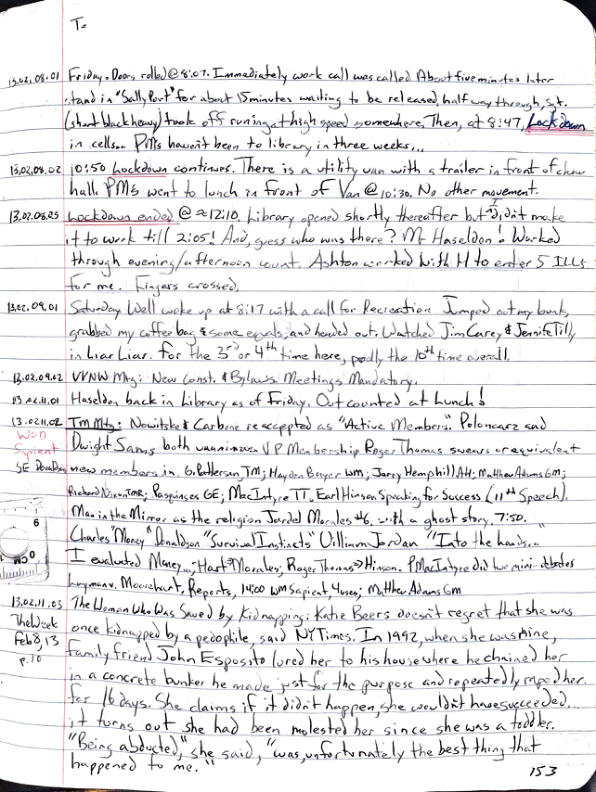 T-
13.02.08.01 Friday. Doors rolled @ 8:07. Immediately work call was called. About five minutes later
stand in "Sally Port" for about 15 minutes waiting to be released, half way through, Sgt.
(short black heavy) took off runing at high speed somewhere. Then, at 8:47, Lockdown
in cells. PM's haven't been to library in three weeks...
13.02.08.02 10:50 Lockdown continues. There is a utility van with a trailer in front of chow
hall. PM's went to lunch in front of Van @ 10:30. No other movement.
13.02.08.25 Lockdown ended @ ≈ 12:10. Library opened shortly thereafter but I didn't make
it to work till 2:05! And, guess who was there? Mr Haseldon! Worked
through evening/afternoon count. Ashton worked with H to enter 5 ILLs
for me. Fingers crossed.
13.02.09.01 Saturday Well woke up at 8:17 with a call for Recreation Jumped out my bunk,
grabbed my coffee bag & some equals, and headed out. Watched Jim Carey & Jennife Tilly
in Liar Liar. For the 3rd or 4th time here, prolly the 10th time overall.
13.02.09.02 VVNW Mtg: New Const. & Bylaws Meetings Mandatory.
13.02.11.01 Haseldon back in Library as of Friday. Out counted at Lunch!
13.02.11.02 TM Mtg: Nowitske & Carbone reaccepted as "Active Members." Poloncarz and
WOD Dwight Sams both VP Membership Roger Thomas swears or equivalent
Sapient
SE new members in. G. Patterson TM; Hayden Beyer WM; Jerry Hemphill AH; Matthew Adams GM;
Richard Nixon TMR; Raspinges GE; MacIntyre TT. Earl Hinson Speaking for Success (11th Speech).
Man in the Mirror as the religion Jardel Morales #6, with a ghost story. 7:50.
Charles "Money" Donaldson "Survival Instincts" William Jordan "Into the hands..."
I evaluated Money...; Hart → Morales; Roger Thomas → Hinson. P. MacIntyre did two mini-debates
Moorehart, Reports, 14:00 WM Sapient, 4 uses; Matthew Adams GM
13.02.11.03 The Woman Who Was Saved by Kidnapping: Katie Beers doesn't regret that she was
The Week once kidnapped by a pedophile, said NY Times. In 1992, when she was nine,
Feb 8, 13 family friend John Esposito lured her to his house where he chained her
p. 10 in a concrete bunker he made just for the purpose and repeatedly raped her.
for 16 days. She claims if it didn't happen, she wouldn't have succeeded...
it turns out she had been molested her since she was a toddler.
"Being abducted," she said, "was, unfortunately the best thing that
happened to me."
153
6